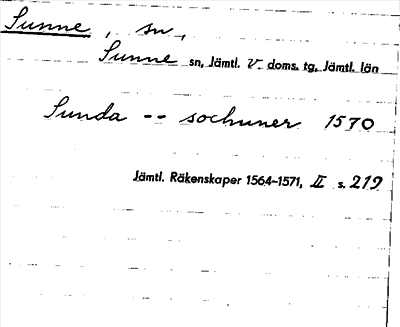 Sunne, sn,
Sunne sn, Jämtl. V. doms. tg, Jämtl. län
Sunda -- sochuner 1570
Jämtl. Räkenskaper 1564-1571, II s. 219